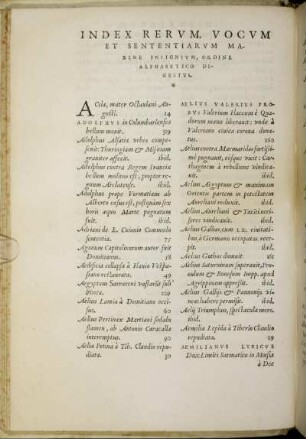 INDEX RERVM, VOCVM
ET SENTENTIARVM MA-
XIME INSIGNIVM, ORDINE
ALPHABETICO DI-
GESTVS.
A
Ccia, mater Octauiani Au-
gusti. 14
ADOLPHVS in Columbariensi
bellum mouit. 319
Adolphus Alsatie vrbes compe-
scuit: Thuringiam & Misniam
grauiter affecit. ibid.
Adolphus contra Regem Franciæ
bellum molitus est, propter re-
gnum Arelatense. ibid.
Adolphus prope Vormatiam ab
Alberto cæsus est, postquam sex
horis æquo Marte pugnatum
fuit. ibid.
Adriani de L. Ceionio Commodo
sententia. 75
Agonum Capitolinorum autor fuit
Domitianus. 18
Aedificia collapsa à Flauio Vespa-
siano restaurata. 49
Aegyptum Saraceni vastasse
ibid.
Aelius Lamia à Domitiano occi-
sus. 60
Aelius Pertinax Martiani
slauuen, ab Antonio Caracalla
interemptus. 90
Aelia Petina à Tib. Claudio repu-
diata. 30
AELIVS VALERIVS PRO-
BVS Valerium Flaccum è Qua-
dorum manu liberauit: vnde à
Valeriano ciuica corona dona-
tus. 160
Aelius contra Marmaridas fortissi-
mè pugnauit, eosque vicit: Car-
thaginem à rebellione vindica-
uit. ibid.
Aelius Aegyptum & maximam
Orientis partem in potestatem
Aureliani redegit. ibid.
Aelius Aureliani & Taciti
res vindicauit. ibid.
Aelius Gallias, cum LX. ciuitati-
bus, à Germanis occupatas rece-
pit. ibid.
Aelius Gothos domuit. 161
Aelius Saturninum superauit, Pro-
culum & Bonosum Impp. apud
Agrippinam oppressit. ibid.
Aelius Gallijs & Pannonijs vi-
neas habere permisit. ibid.
Aelij Triumphus, spectacula mors.
ibid.
Aemilia Lepida à Tiberio Claudio
repudiata. 29
AEMILIANVS LYBICVS
Dux Limitis Sarmatici in Mœsia
à Dor